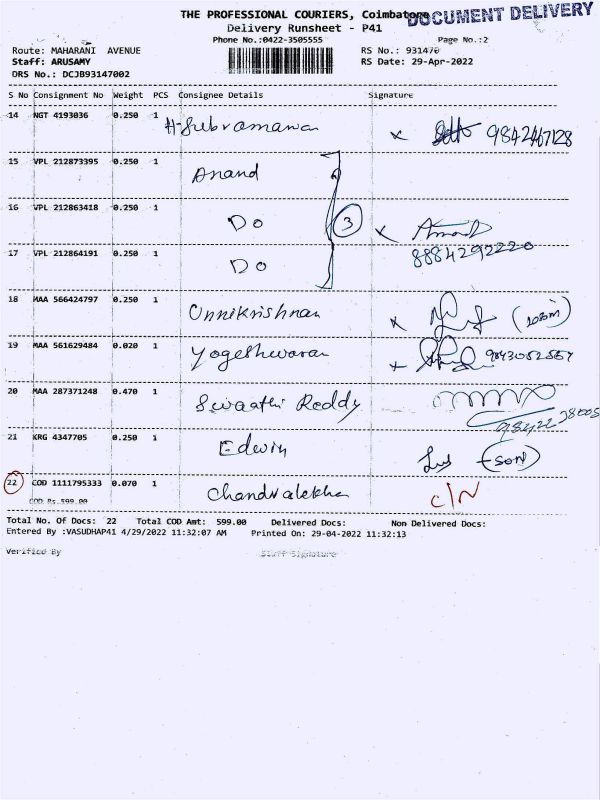 THE PROFESSIONAL COURIERS, Coimbatore
DOCUMENT DELIVERY
Delivery Runsheet - P41
Phone No.:0422-3505555 Page No.:2
Route: MAHARANI AVENUE RS No.: 931470
Staff: ARUSAMY RS Date: 29-Apr-2022
DRS No.: DCJB93147002
S No Consignment No Weight PCS Consignee Details Signature
14 NGT 4193036 0.250 1 H-Subramanian x 9842467128
15 VPL 212873395 0.250 1 Anand
16 VPL 212863418 0.250 1 Do 3 x Anand
17 VPL 212864191 0.250 1 Do 8884292220
18 MAA 566424797 0.250 1 Unnikrishnan x
19 MAA 561629484 0.020 1 Yogeshwaran x
20 MAA 287371248 0.470 1 Swaathi Reddy
21 KRG 4347705 0.250 1 Edwin (son)
22 COD 1111795333 0.070 1 Chandralekha C/N
COD Rs.599.00
Total No. Of Docs: 22 Total COD Amt: 599.00 Delivered Docs: Non Delivered Docs:
Entered By :VASUDHAP41 4/29/2022 11:32:07 AM Printed On: 29-04-2022 11:32:13
Verified By Staff Signature